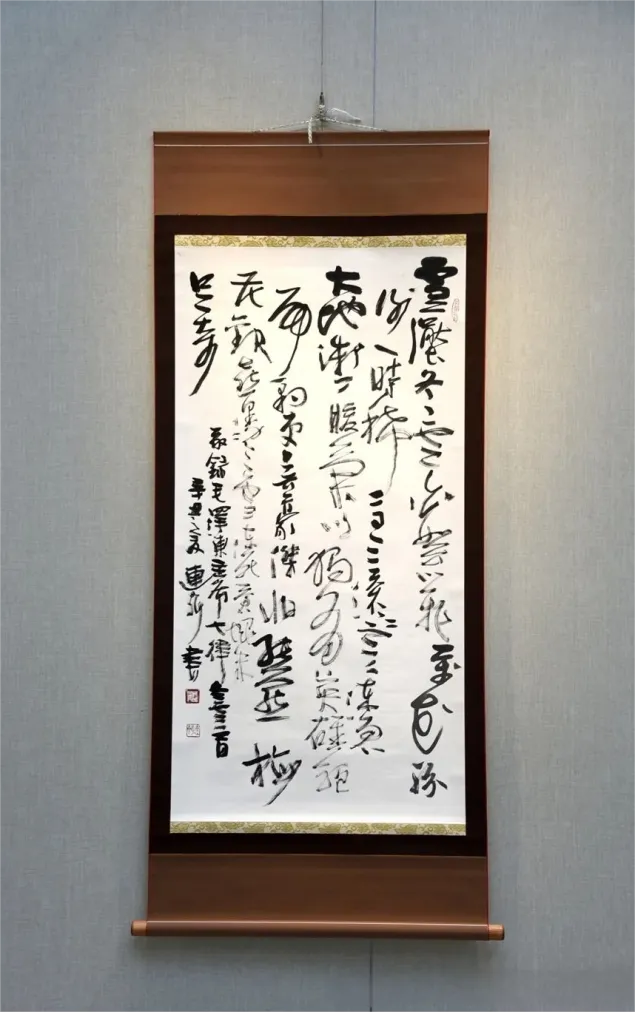 雪壓冬雲白絮飛萬花紛
謝一時稀高天滾滾寒流急
大地微微暖氣吹獨有英雄驅
虎豹更無豪傑怕熊羆梅
花歡喜漫天雪凍死蒼蠅未
足奇
錄毛澤東主席七律冬雲一首
辛丑之夏連書